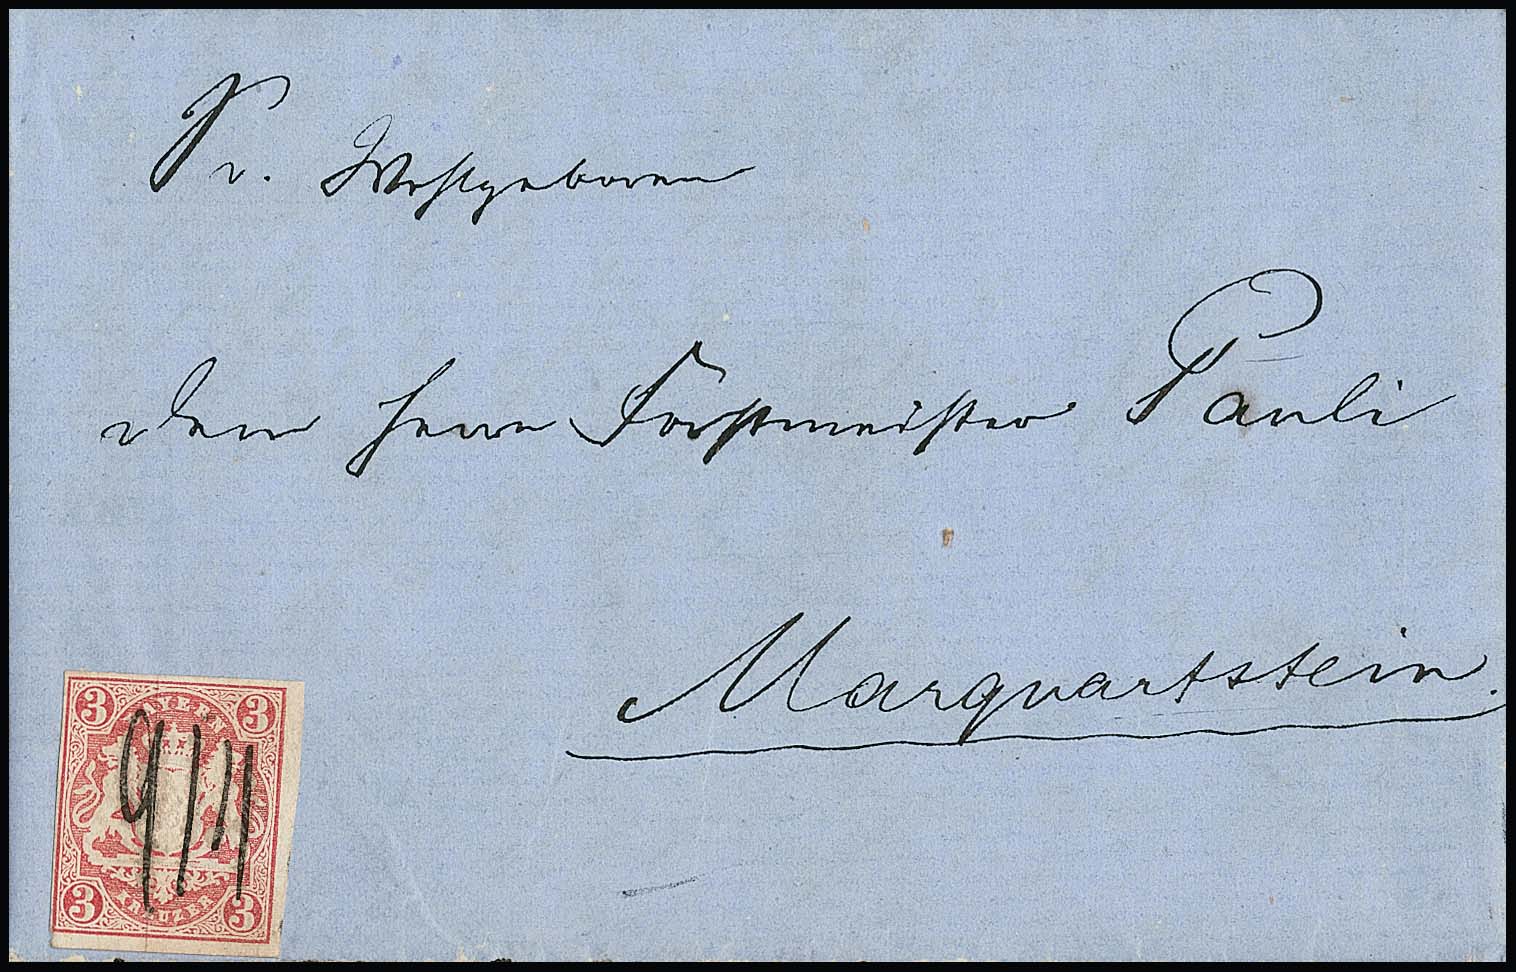 Sr. Wohlgeboren
dem Herrn Forstmeister Pauli
Marquartstein.
3 BAYERN 3
9/11
3 KREUZER 3